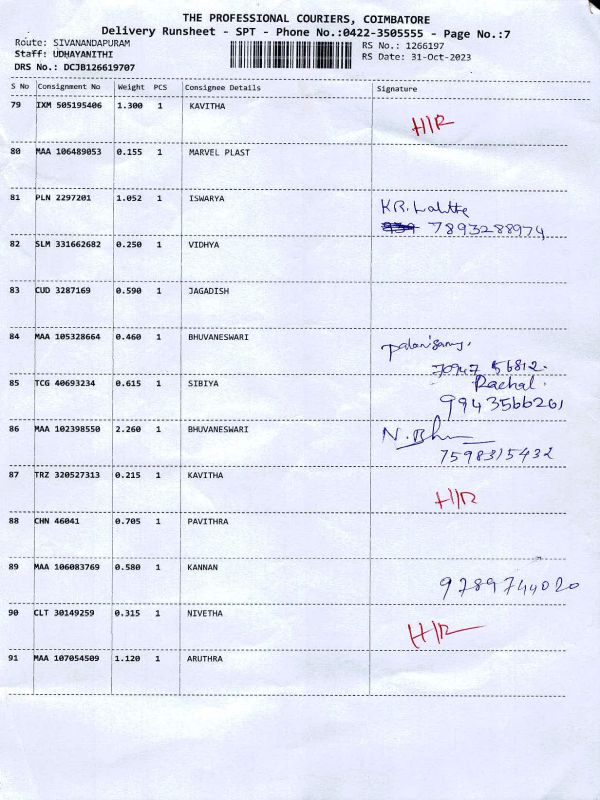 THE PROFESSIONAL COURIERS, COIMBATORE
Delivery Runsheet - SPT - Phone No.:0422-3505555 - Page No.:7
Route: SIVANANDAPURAM
RS No.: 1266197
Staff: UDHAYANITHI
RS Date: 31-Oct-2023
DRS No.: DCJB126619707
S No Consignment No Weight PCS Consignee Details Signature
79 IXM 505195406 1.300 1 KAVITHA
H/R
80 MAA 106489053 0.155 1 MARVEL PLAST
81 PLN 2297201 1.052 1 ISWARYA
KR.
7893288974
82 SLM 331662682 0.250 1 VIDHYA
83 CUD 3287169 0.590 1 JAGADISH
84 MAA 105328664 0.460 1 BHUVANESWARI
Palanisamy.
70947 56812.
85 TCG 40693234 0.615 1 SIBIYA
Rachal.
9943566261
86 MAA 102398550 2.260 1 BHUVANESWARI
N.
7598315432
87 TRZ 320527313 0.215 1 KAVITHA
H/R
88 CHN 46041 0.705 1 PAVITHRA
89 MAA 106083769 0.580 1 KANNAN
9789744020
90 CLT 30149259 0.315 1 NIVETHA
H/R
91 MAA 107054509 1.120 1 ARUTHRA